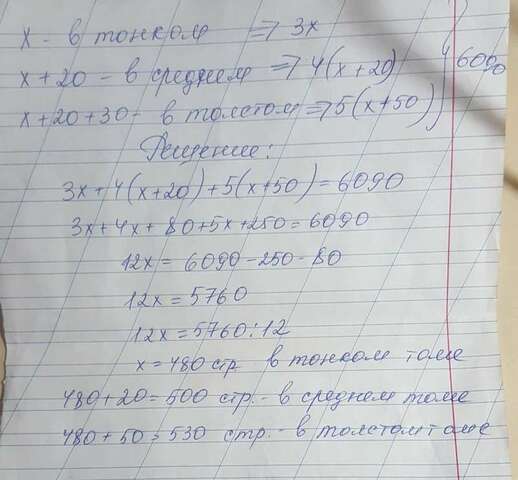 x - в тонком => 3x
x+20 - в среднем => 4(x+20)
x+20+30- в толстом => 5(x+50) } 6090
Решение:
3x+4(x+20)+5(x+50)=6090
3x+4x+80+5x+250=6090
12x=6090-250-80
12x=5760
12x=5760:12
x=480 стр в тонком томе
480+20=500 стр.- в среднем томе
480+50=530 стр.- в толстом томе